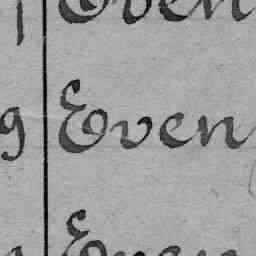 Even
9 Even
Even